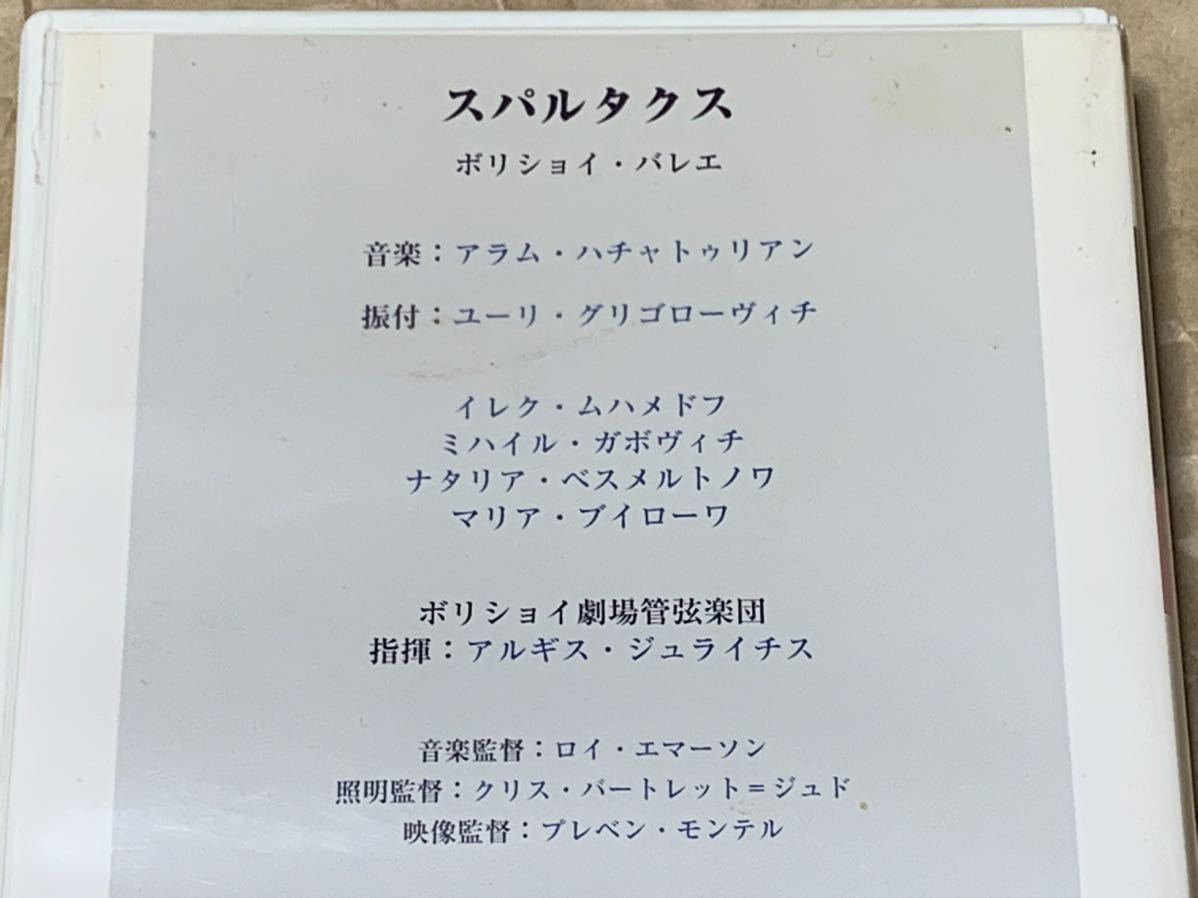 スパルタクス
ボリショイ・バレエ
音楽：アラム・ハチャトゥリアン
振付：ユーリ・グリゴローヴィチ
イレク・ムハメドフ
ミハイル・ガボヴィチ
ナタリア・ベスメルトノワ
マリア・ブイローワ
ボリショイ劇場管弦楽団
指揮：アルギス・ジュライチス
音楽監督：ロイ・エマーソン
照明監督：クリス・バートレット＝ジュド
映像監督：プレベン・モンテル